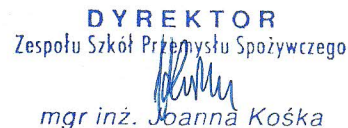 DYREKTOR
Zespołu Szkół Przemysłu Spożywczego
mgr inż. Joanna Kośka